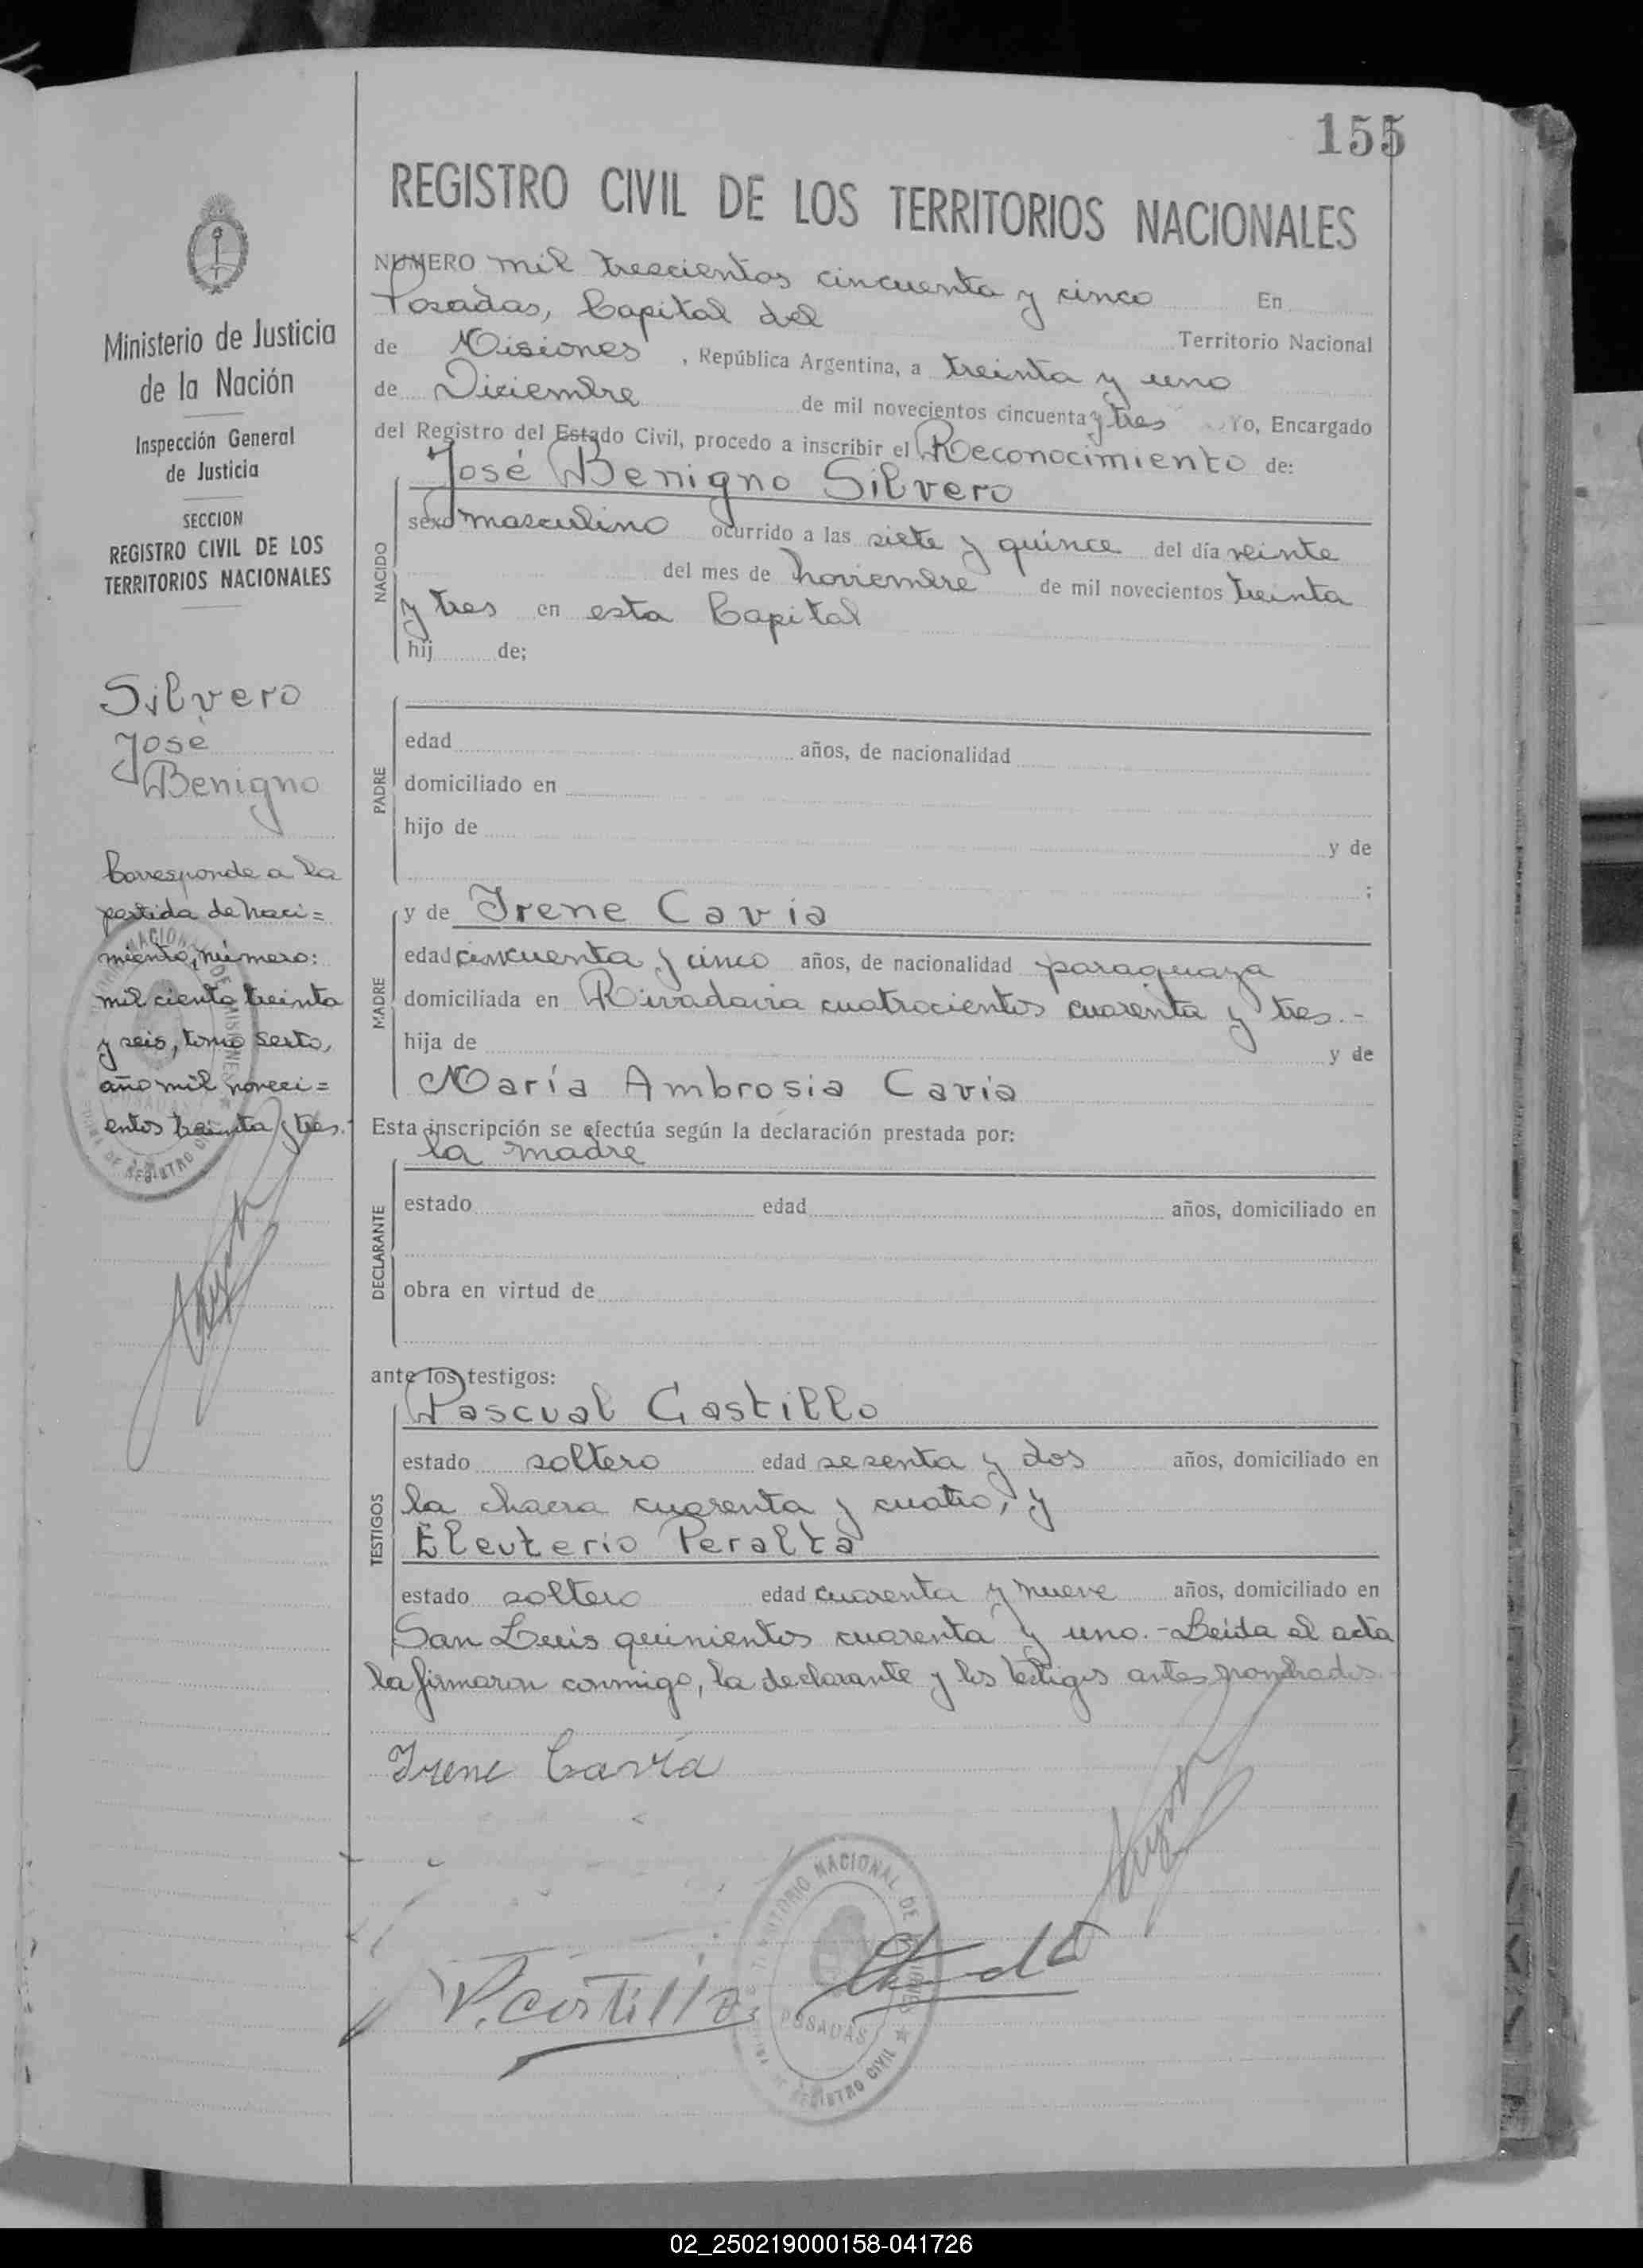 155
REGISTRO CIVIL DE LOS TERRITORIOS NACIONALES
Ministerio de Justicia
de la Nación
Inspección General
de Justicia
SECCION
REGISTRO CIVIL DE LOS
TERRITORIOS NACIONALES
Silvero
José
Benigno
Corresponde a la
partida de naci=
miento, número:
mil ciento treinta
y seis, tomo sexto,
año mil noveci=
entos treinta y tres.-
NUMERO mil trescientos cincuenta y cinco En
Posadas, Capital del Territorio Nacional
de Misiones, República Argentina, a treinta y uno
de Diciembre de mil novecientos cincuenta y tres Yo, Encargado
del Registro del Estado Civil, procedo a inscribir el Reconocimiento de:
José Benigno Silvero
NACIDO
sexo masculino ocurrido a las siete y quince del día veinte
del mes de noviembre de mil novecientos treinta
y tres en esta Capital
hij de;
PADRE
edad años, de nacionalidad
domiciliado en
hijo de y de
;
MADRE
y de Irene Cavia
edad cincuenta y cinco años, de nacionalidad paraguaya
domiciliada en Rivadavia cuatrocientos cuarenta y tres.-
hija de y de
María Ambrosia Cavia
Esta inscripción se efectúa según la declaración prestada por:
la madre
DECLARANTE
estado edad años, domiciliado en
obra en virtud de
ante los testigos:
TESTIGOS
Pascual Castillo
estado soltero edad sesenta y dos años, domiciliado en
la chacra cuarenta y cuatro, y
Eleuterio Peralta
estado soltero edad cuarenta y nueve años, domiciliado en
San Luis quinientos cuarenta y uno.- Leída el acta
la firmaron conmigo, la declarante y los testigos antes nombrados.-
Irene Cavía
P. Castillo
TERRITORIO NACIONAL DE MISIONES
POSADAS
OFICINA DE REGISTRO CIVIL
02_250219000158-041726